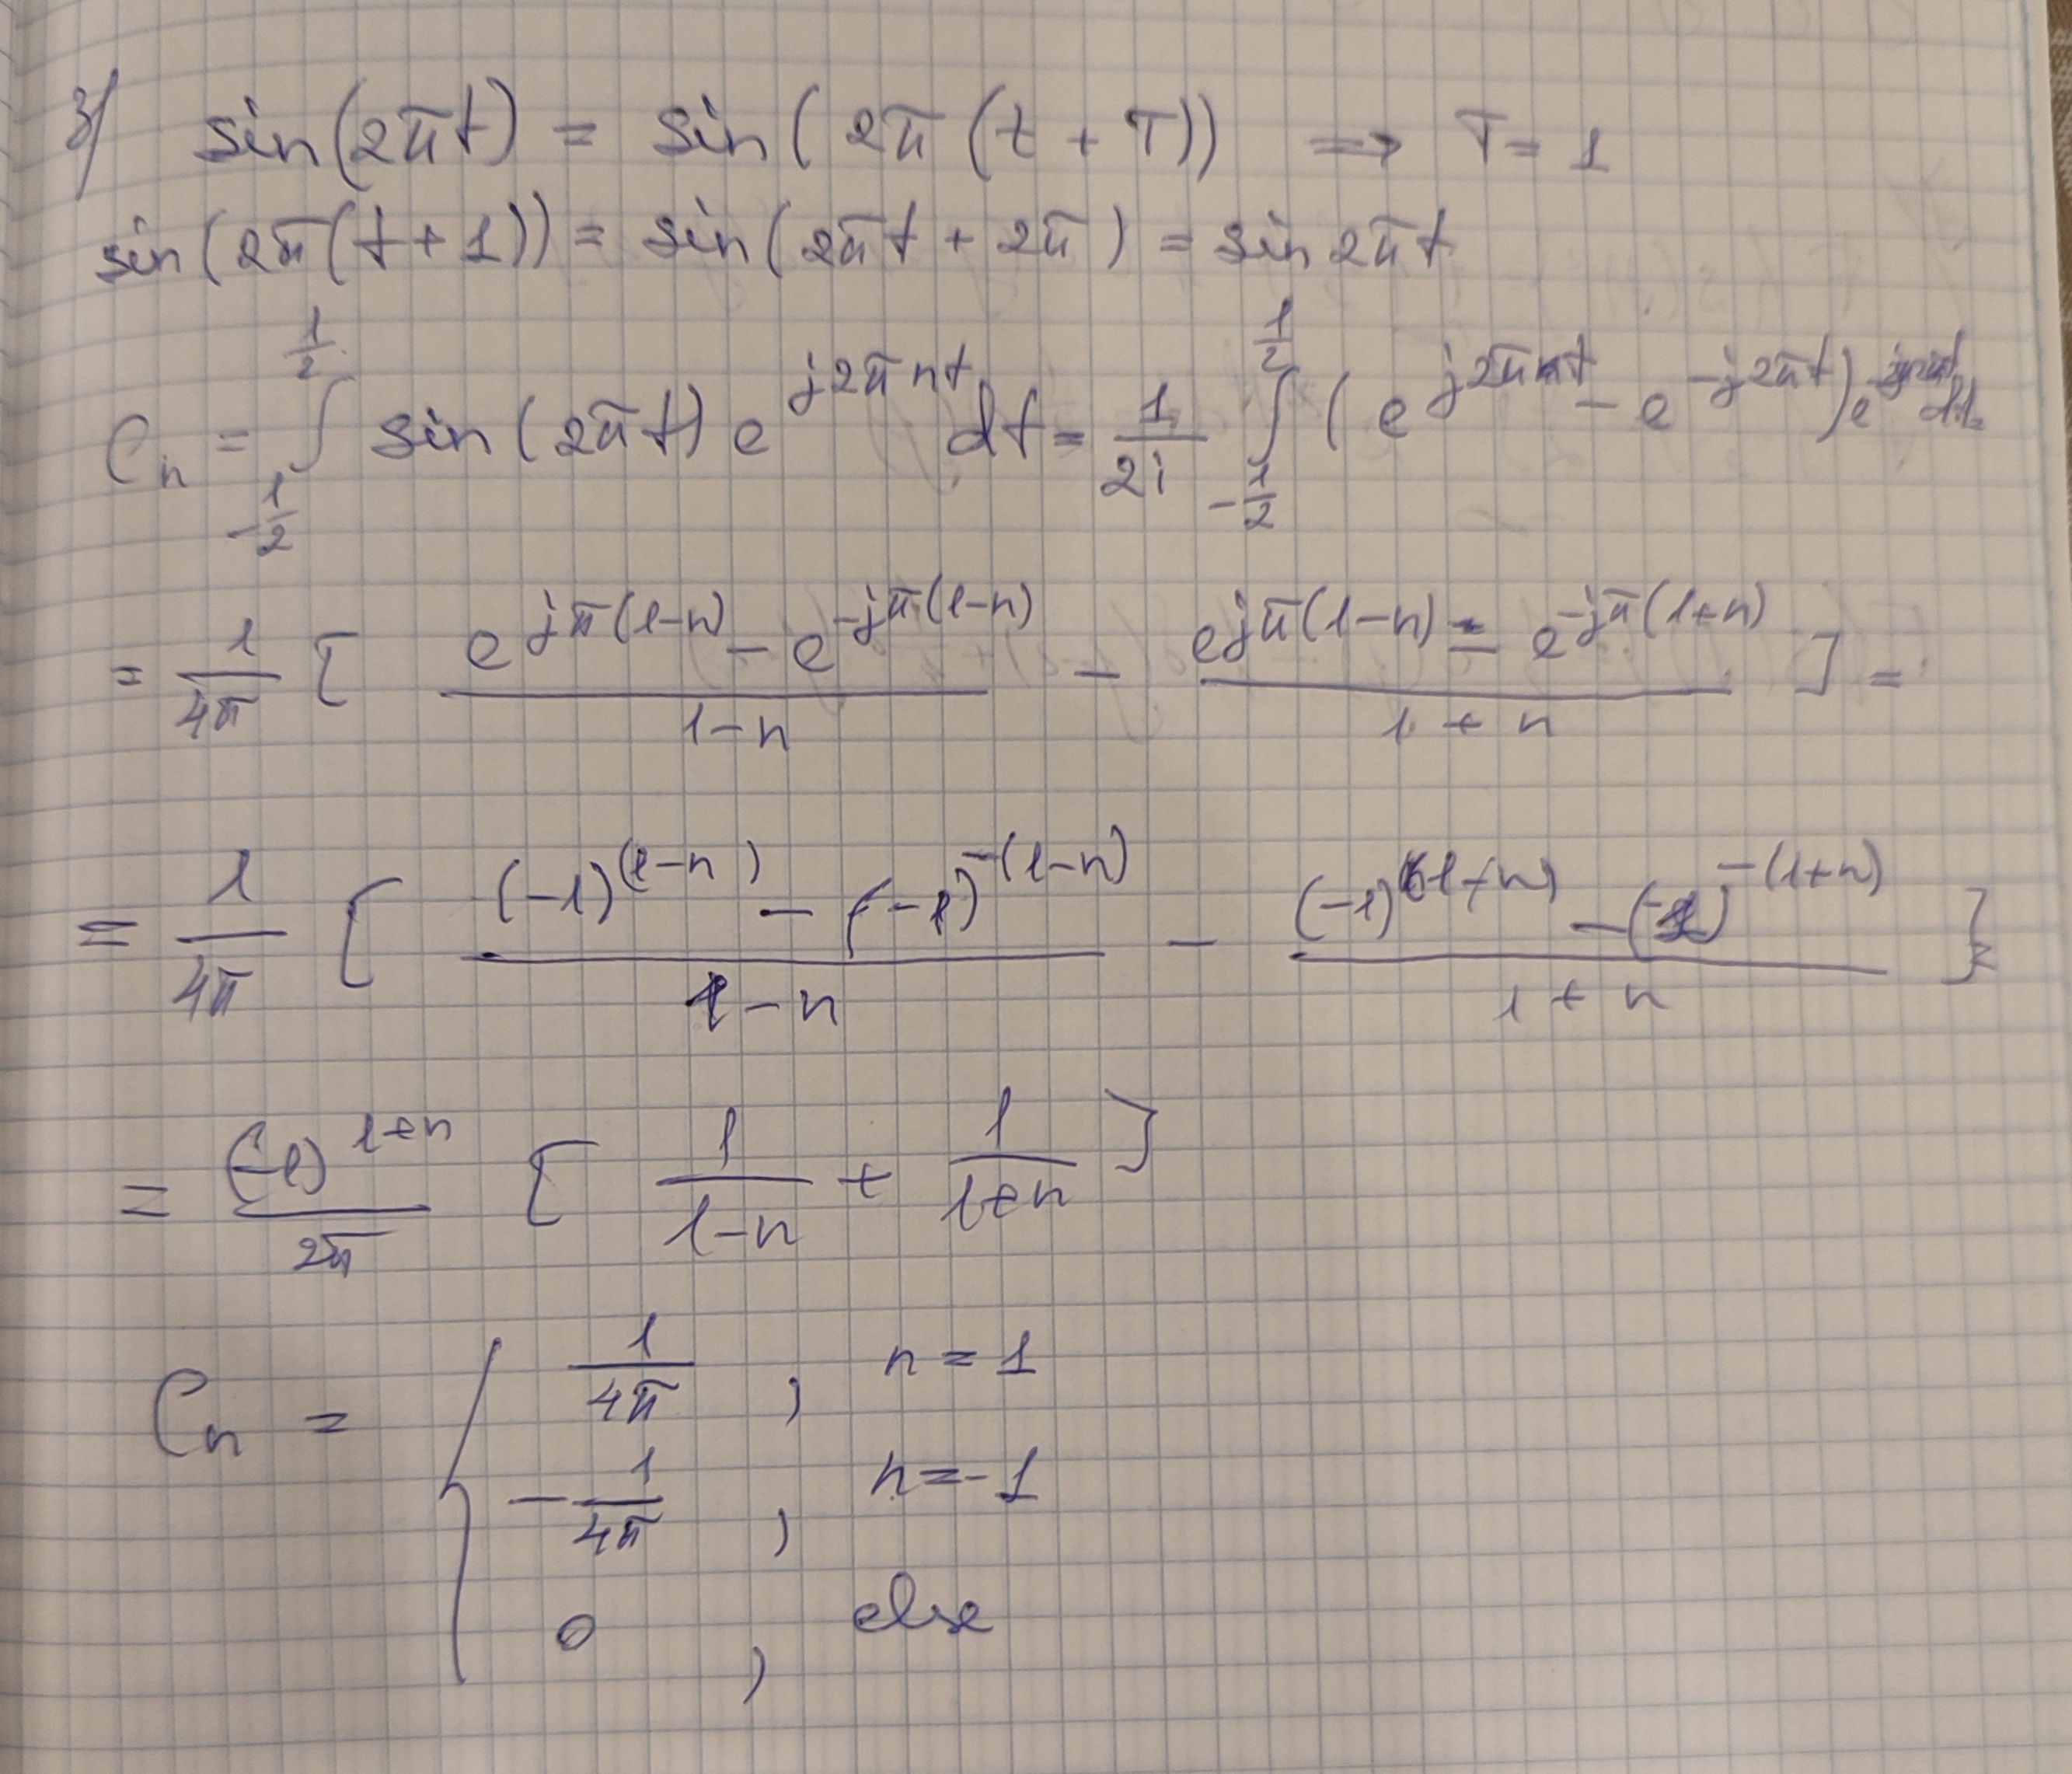 3) sin(2πt) = sin(2π(t + T)) ⟹ T = 1
sin(2π(t+1)) = sin(2πt + 2π) = sin 2πt
C_n = ∫_{-1/2}^{1/2} sin(2πt) e^{j2πnt} dt = 1/(2i) ∫_{-1/2}^{1/2} (e^{j2πt} - e^{-j2πt}) e dt =
= 1/(4π) [ (e^{jπ(1-n)} - e^{-jπ(1-n)})/(1-n) - (e^{jπ(1-n)} - e^{-jπ(1+n)})/(1+n) ] =
= 1/(4π) [ ((-1)^{(1-n)} - (-1)^{-(1-n)})/(1-n) - ((-1)^{(1+n)} - (-1)^{-(1+n)})/(1+n) ]
= (-1)^{1+n}/(2π) [ 1/(1-n) + 1/(1+n) ]
C_n = { 1/(4π) , n = 1
-1/(4π) , n = -1
0 , else